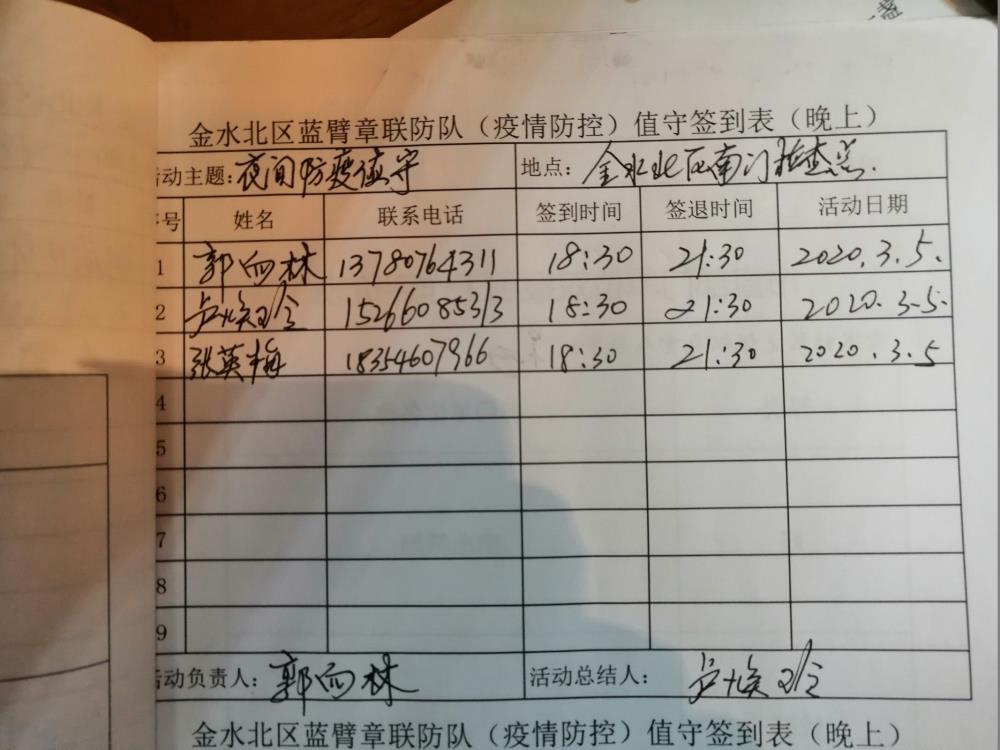 金水北区蓝臂章联防队（疫情防控）值守签到表（晚上）
动主题：夜间防疫值守 地点：金水北区南门检查点.
号 姓名 联系电话 签到时间 签退时间 活动日期
1 郭向林 13780764311 18:30 21:30 2020.3.5.
2 卢焕玲 15266085313 18:30 21:30 2020.3.5.
3 张英梅 18354607966 18:30 21:30 2020.3.5
4
5
6
7
8
9
动负责人：郭向林 活动总结人：卢焕玲
金水北区蓝臂章联防队（疫情防控）值守签到表（晚上）